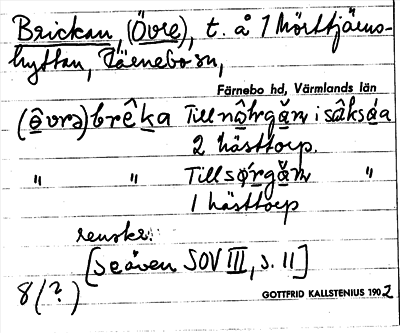 Brickan, (Övre), t. å 1 Mörttjärns-
hyttan, Färnebo sn,
Färnebo hd, Värmlands län
(ôvrə) brêka Till nôrgạ̌ṇ i sâksáa
2 hästtorp.
" " Till sǿrgạ̌ṇ "
1 hästtorp
renskr.
[se även SOV III, s. 11]
8(?) GOTTFRID KALLSTENIUS 1902